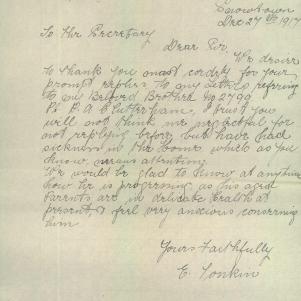 Dec 27th 1917
To The Secretary
Dear Sir
We desire
to thank you most cordily for your
prompt replies to my letters refering
to my Beloved Brother No 2799
Pt P. A. C. I trust you
will not think me neglectful for
not replying before but have had
sickness in the home which as you
know means attention.
We would be glad to know at anytime
how he is progressing as his aged
Parents are in delicate health at
present & feel very anxious concerning
him
Yours Faithfully
E. Tonkin